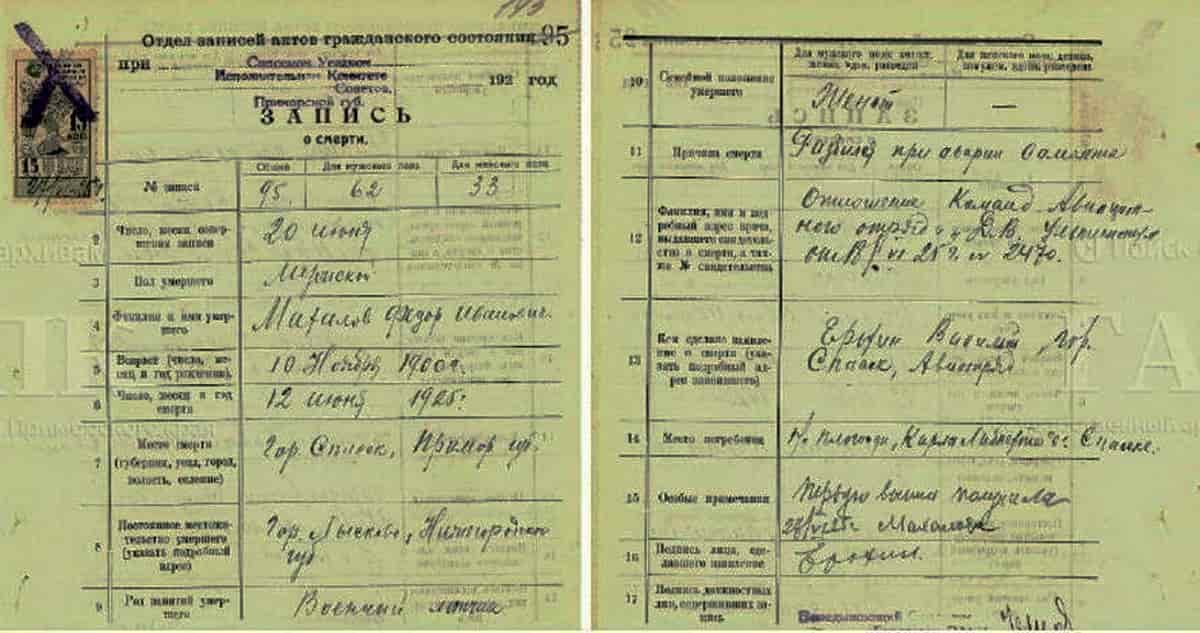 95
Отдел записей актов гражданского состояния
при Спасском Уездном
Исполнительном Комитете
Советов,
Приморской губ.
192 год
ЗАПИСЬ
о смерти.
15
Общие Для мужского пола Для женского пола
№ записи 95. 62 33
2 Число, месяц совер-
шения записи 20 июня
3 Пол умершего Мужской
4 Фамилия и имя умер-
шего Махалов Федор Иванович.
5 Возраст (число, ме-
сяц и год рождения). 10 Ноября 1900 г.
6 Число, месяц и год
смерти 12 июня 1925 г.
7 Место смерти
(губерния, уезд, город,
волость, селение) Гор. Спасск, Примор. губ.
8 Постоянное местожи-
тельство умершего
(указать подробный
адрес) Гор. Лысково, Нижегородской
губ.
9 Род занятий умер-
шего Военный летчик
10 Семейное положение
умершего
Для мужского пола: холост,
женат, вдов, разведен
Для женского пола: девица,
замужем, вдова, разведена
Женат —
11 Причина смерти Разбился при аварии самолета
12 Фамилия, имя и под-
робный адрес врача,
выдавшего свидетель-
ство о смерти, а так-
же № свидетельства
Отношение Команд. Авиацион-
ного отряда Д.В.
от 25 г. № 2470.
13 Кем сделано заявле-
ние о смерти (ука-
зать подробный ад-
рес заявившего)
Гор.
Спасск, Авиоотряд
14 Место погребения На площади, Карла Либкнехта в г. Спасске.
15 Особые примечания
получила
Махалова
16 Подпись лица, сде-
лавшего заявление Ерохин.
17 Подпись должностных
лиц, совершивших за-
пись
Заведывающий